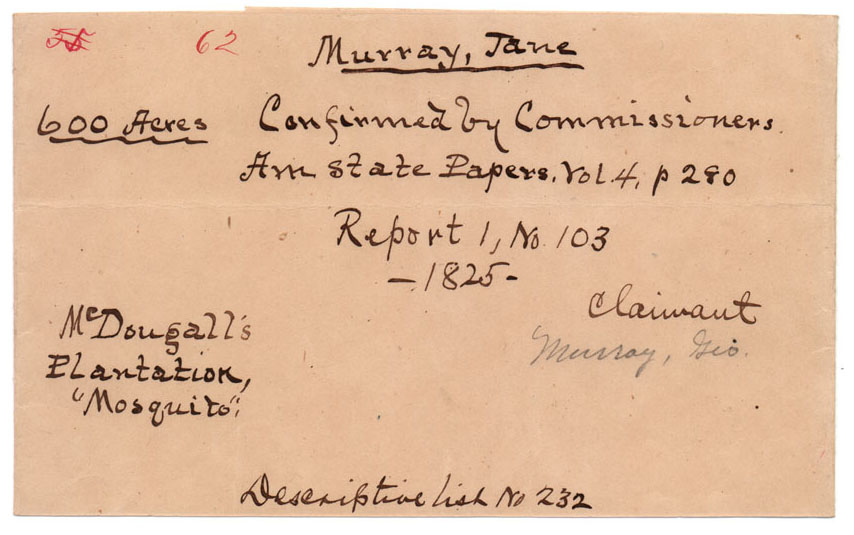 55 62
Murray, Jane
600 Acres Confirmed by Commissioners.
Am State Papers. Vol. 4, p 280
Report 1, No. 103
- 1825 -
Claimant
Murray, Geo.
McDougall's
Plantation,
"Mosquito".
Descriptive list No 232